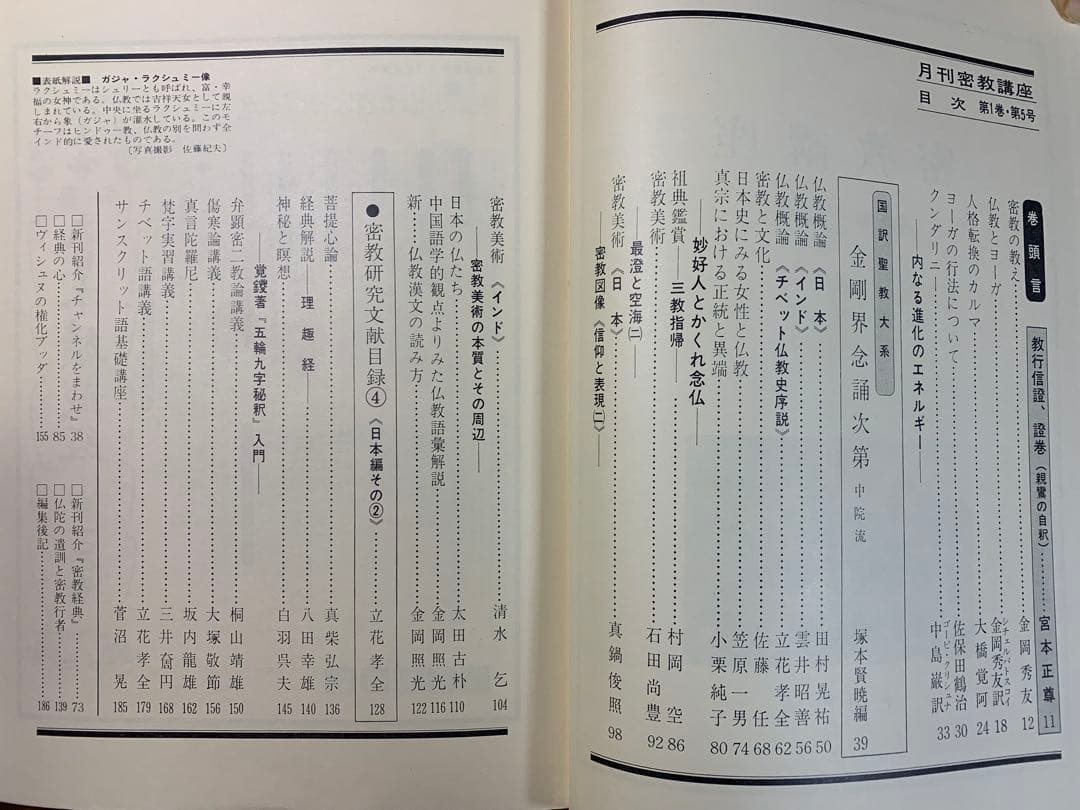 月刊密教講座
目次 第1巻・第5号
巻頭言
教行信證、證巻(親鸞の自釈)………宮本正尊 11
密教の教え………金岡秀友 12
仏教とヨーガ………シチェルバトスコイ 金岡秀友訳 18
人格転換のカルマ………大橋覚阿 24
ヨーガの行法について………佐保田鶴治 30
クンダリニー………ゴーピ・クリシュナ 中島巌訳 33
内なる進化のエネルギー――
国訳聖教大系
金剛界念誦次第 中院流 塚本賢曉編 39
仏教概論《日本》………田村晃祐 50
仏教概論《インド》………雲井昭善 56
仏教概論《チベット仏教史序説》………立花孝全 62
密教と文化………佐藤任 68
日本史にみる女性と仏教………笠原一男 74
真宗における正統と異端………小栗純子 80
妙好人とかくれ念仏――
祖典鑑賞――三教指帰………村岡空 86
密教美術………石田尚豊 92
最澄と空海㈡――
密教美術《日本》………真鍋俊照 98
密教図像《信仰と表現㈡》――
密教美術《インド》………清水乞 104
密教美術の本質とその周辺――
日本の仏たち………太田古朴 110
中国語学的観点よりみた仏教語彙解説………金岡照光 116
新……仏教漢文の読み方………金岡照光 122
●密教研究文献目録④《日本編その②》………立花孝全 128
菩提心論………真柴弘宗 136
経典解説――理趣経――………八田幸雄 140
神秘と瞑想………白羽呉夫 145
――覚鑁著『五輪九字秘釈』入門――
弁顕密二教論講義………桐山靖雄 150
傷寒論講義………大塚敬節 156
真言陀羅尼………坂内龍雄 162
梵字実習講義………三井奝円 168
チベット語講義………立花孝全 179
サンスクリット語基礎講座………菅沼晃 185
□新刊紹介『チャンネルをまわせ』38
□経典の心………85
□ヴィシュヌの権化ブッダ………155
□新刊紹介『密教経典』………73
□仏陀の遺訓と密教行者………139
□編集後記………186
■表紙解説■ ガジャ・ラクシュミー像
ラクシュミーはシュリーとも呼ばれ、富・幸
福の女神である。仏教では吉祥天女として親
しまれている。中央に坐るラクシュミーに左
右から象(ガジャ)が灌水している。このモ
チーフはヒンドゥー教、仏教の別を問わず全
インド的に愛されたものである。
〔写真撮影 佐藤紀夫〕